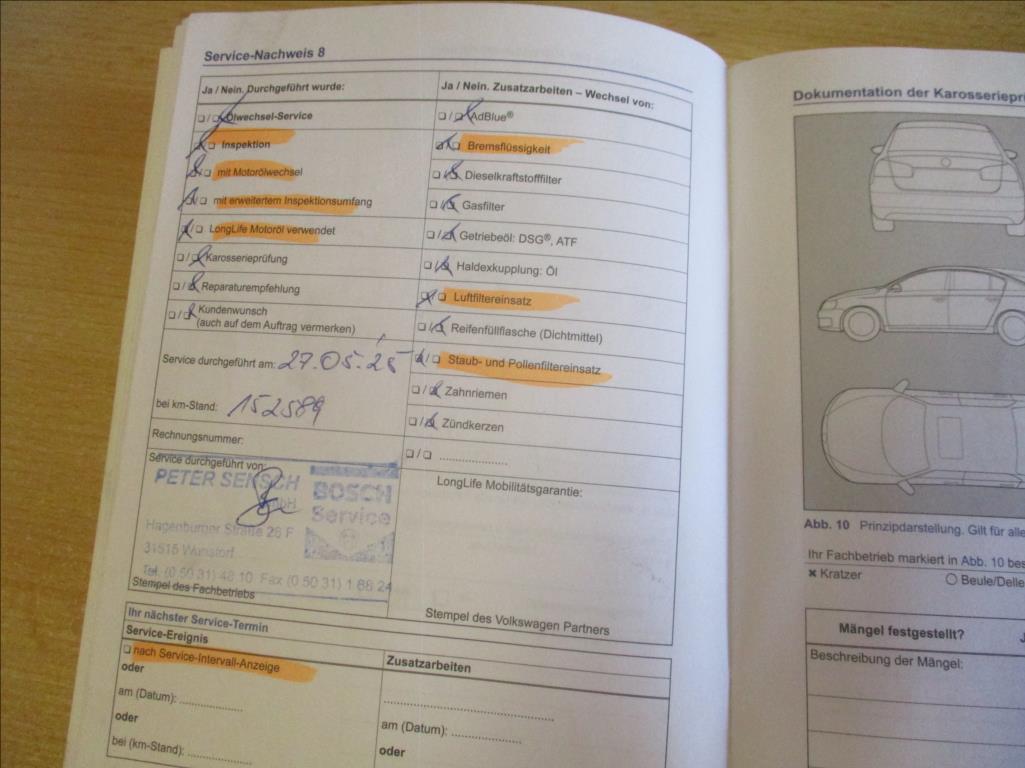 Service-Nachweis 8
Ja / Nein. Durchgeführt wurde:
Ölwechsel-Service
Inspektion
mit Motorölwechsel
mit erweitertem Inspektionsumfang
LongLife Motoröl verwendet
Karosserieprüfung
Reparaturempfehlung
Kundenwunsch
(auch auf dem Auftrag vermerken)
Service durchgeführt am: 27.05.25
bei km-Stand: 152589
Rechnungsnummer:
Service durchgeführt von:
PETER SENSCH
GmbH
BOSCH
Service
Hagenburger Straße 26 F
31515 Wunstorf
Tel. (0 50 31) 48 10 Fax (0 50 31) 1 68 24
Stempel des Fachbetriebs
Ja / Nein. Zusatzarbeiten – Wechsel von:
AdBlue®
Bremsflüssigkeit
Dieselkraftstofffilter
Gasfilter
Getriebeöl: DSG®, ATF
Haldexkupplung: Öl
Luftfiltereinsatz
Reifenfüllflasche (Dichtmittel)
Staub- und Pollenfiltereinsatz
Zahnriemen
Zündkerzen
LongLife Mobilitätsgarantie:
Stempel des Volkswagen Partners
Ihr nächster Service-Termin
Service-Ereignis
nach Service-Intervall-Anzeige
oder
am (Datum):
oder
bei (km-Stand):
Zusatzarbeiten
am (Datum):
oder
Dokumentation der Karosserieprü
Abb. 10 Prinzipdarstellung. Gilt für alle
Ihr Fachbetrieb markiert in Abb. 10 bes
× Kratzer
○ Beule/Delle
Mängel festgestellt?
Beschreibung der Mängel: